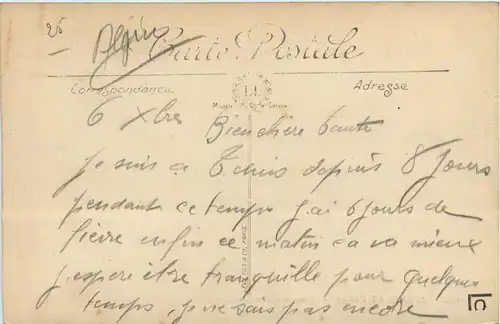 25
Alger
Carte Postale
Correspondance
Adresse
LL
6 Xbre Bien chère tante
je suis a Tunis depuis 8 jours
pendant ce temps j'ai 6 jours de
fièvre enfin ce matin ça va mieux
j'espère être tranquille pour quelques
temps, je ne sais pas encore